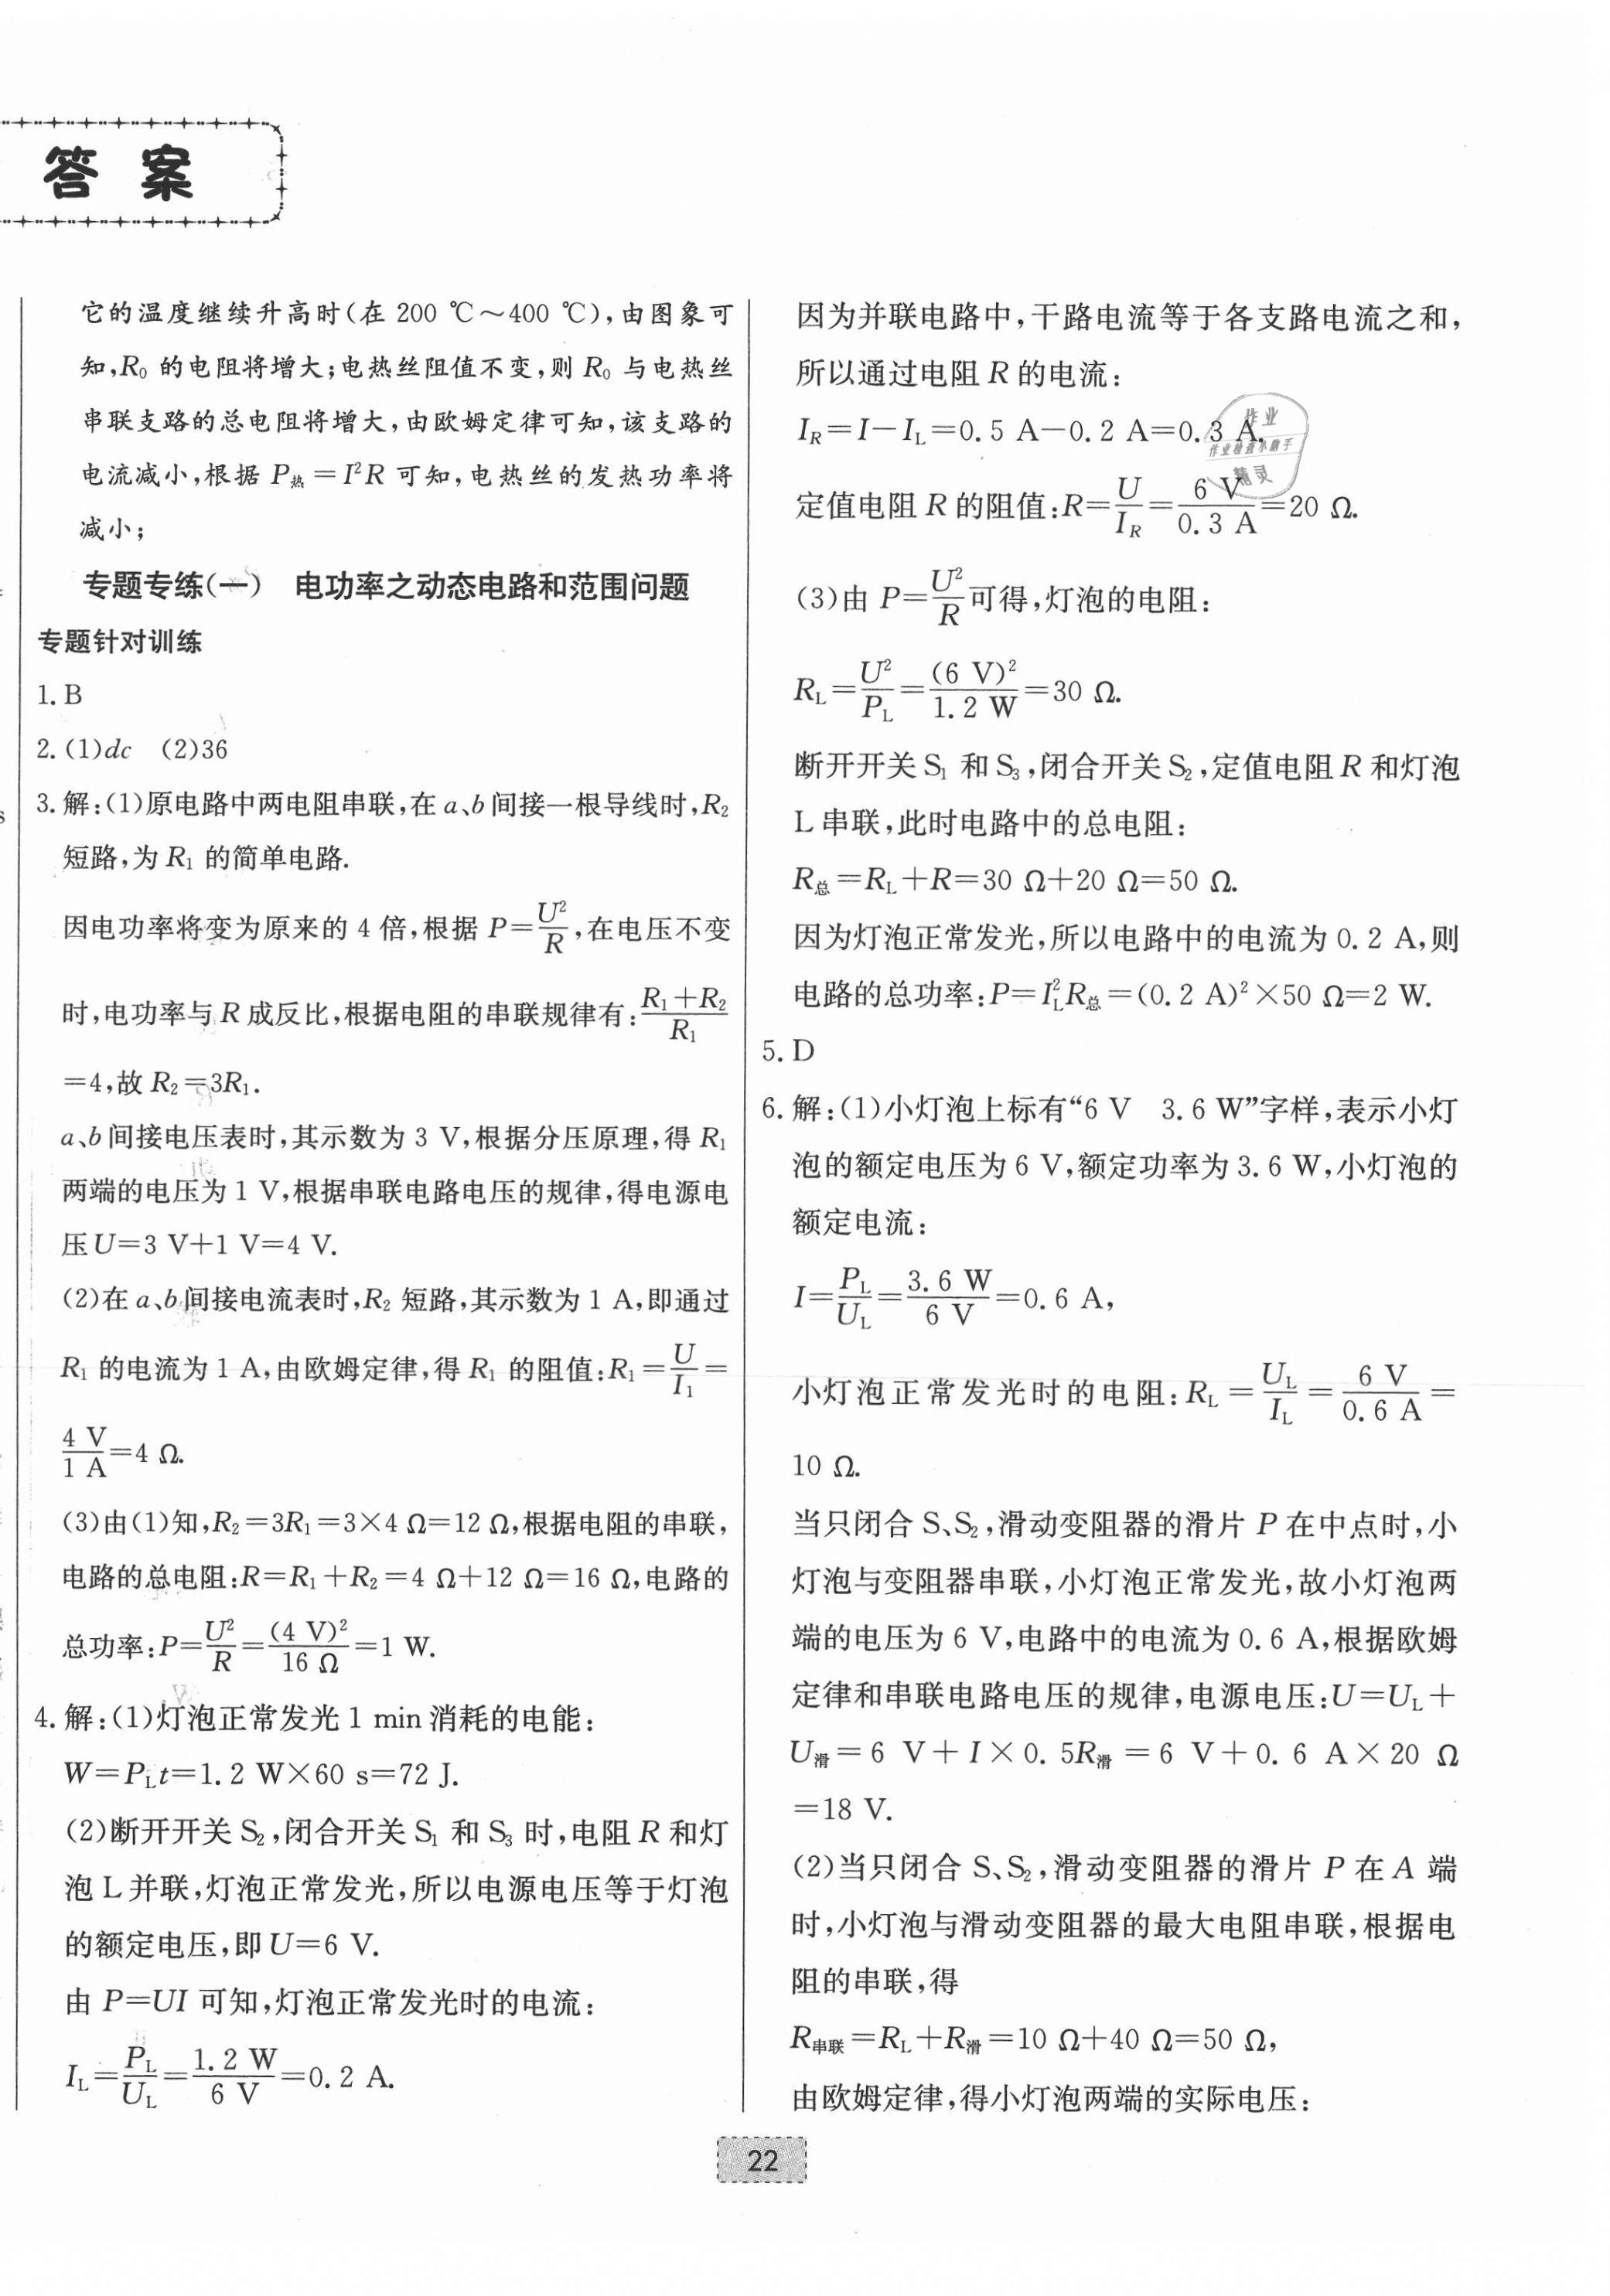 答 案
它的温度继续升高时(在 200 ℃～400 ℃),由图象可
知,R₀ 的电阻将增大;电热丝阻值不变,则 R₀ 与电热丝
串联支路的总电阻将增大,由欧姆定律可知,该支路的
电流减小,根据 P热=I²R 可知,电热丝的发热功率将
减小;
专题专练(一) 电功率之动态电路和范围问题
专题针对训练
1. B
2. (1)dc (2)36
3. 解:(1)原电路中两电阻串联,在 a、b 间接一根导线时,R₂
短路,为 R₁ 的简单电路.
因电功率将变为原来的 4 倍,根据 P=U²/R,在电压不变
时,电功率与 R 成反比,根据电阻的串联规律有:(R₁+R₂)/R₁
=4,故 R₂=3R₁.
a、b 间接电压表时,其示数为 3 V,根据分压原理,得 R₁
两端的电压为 1 V,根据串联电路电压的规律,得电源电
压 U=3 V+1 V=4 V.
(2)在 a、b 间接电流表时,R₂ 短路,其示数为 1 A,即通过
R₁ 的电流为 1 A,由欧姆定律,得 R₁ 的阻值:R₁=U/I₁=
4 V/1 A=4 Ω.
(3)由(1)知,R₂=3R₁=3×4 Ω=12 Ω,根据电阻的串联,
电路的总电阻:R=R₁+R₂=4 Ω+12 Ω=16 Ω,电路的
总功率:P=U²/R=(4 V)²/16 Ω=1 W.
4. 解:(1)灯泡正常发光 1 min 消耗的电能:
W=P_L t=1.2 W×60 s=72 J.
(2)断开开关 S₂,闭合开关 S₁ 和 S₃ 时,电阻 R 和灯
泡 L 并联,灯泡正常发光,所以电源电压等于灯泡
的额定电压,即 U=6 V.
由 P=UI 可知,灯泡正常发光时的电流:
I_L=P_L/U_L=1.2 W/6 V=0.2 A.
因为并联电路中,干路电流等于各支路电流之和,
所以通过电阻 R 的电流:
I_R=I-I_L=0.5 A-0.2 A=0.3 A.
定值电阻 R 的阻值:R=U/I_R=6 V/0.3 A=20 Ω.
(3)由 P=U²/R可得,灯泡的电阻:
R_L=U²/P_L=(6 V)²/1.2 W=30 Ω.
断开开关 S₁ 和 S₃,闭合开关 S₂,定值电阻 R 和灯泡
L 串联,此时电路中的总电阻:
R总=R_L+R=30 Ω+20 Ω=50 Ω.
因为灯泡正常发光,所以电路中的电流为 0.2 A,则
电路的总功率:P=I_L²R总=(0.2 A)²×50 Ω=2 W.
5. D
6. 解:(1)小灯泡上标有“6 V 3.6 W”字样,表示小灯
泡的额定电压为 6 V,额定功率为 3.6 W,小灯泡的
额定电流:
I=P_L/U_L=3.6 W/6 V=0.6 A,
小灯泡正常发光时的电阻:R_L=U_L/I_L=6 V/0.6 A=
10 Ω.
当只闭合 S、S₂,滑动变阻器的滑片 P 在中点时,小
灯泡与变阻器串联,小灯泡正常发光,故小灯泡两
端的电压为 6 V,电路中的电流为 0.6 A,根据欧姆
定律和串联电路电压的规律,电源电压:U=U_L+
U滑=6 V+I×0.5R滑=6 V+0.6 A×20 Ω
=18 V.
(2)当只闭合 S、S₂,滑动变阻器的滑片 P 在 A 端
时,小灯泡与滑动变阻器的最大电阻串联,根据电
阻的串联,得
R串联=R_L+R滑=10 Ω+40 Ω=50 Ω,
由欧姆定律,得小灯泡两端的实际电压:
作业
作业检查小助手
精灵
22